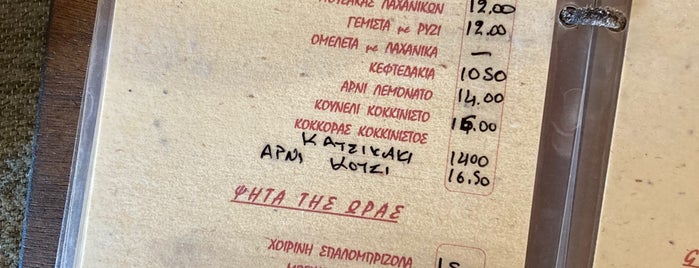 ΜΟΥΣΑΚΑΣ ΛΑΧΑΝΙΚΩΝ 12.00
ΓΕΜΙΣΤΑ με ΡΥΖΙ 12.00
ΟΜΕΛΕΤΑ με ΛΑΧΑΝΙΚΑ —
ΚΕΦΤΕΔΑΚΙΑ 10.50
ΑΡΝΙ ΛΕΜΟΝΑΤΟ 14.00
ΚΟΥΝΕΛΙ ΚΟΚΚΙΝΙΣΤΟ 16.00
ΚΟΚΚΟΡΑΣ ΚΟΚΚΙΝΙΣΤΟΣ
ΚΑΤΣΙΚΑΚΙ 14.00
ΑΡΝΙ ΚΟΤΣΙ 16.50
ΨΗΤΑ ΤΗΣ ΩΡΑΣ
ΧΟΙΡΙΝΗ ΣΠΑΛΟΜΠΡΙΖΟΛΑ